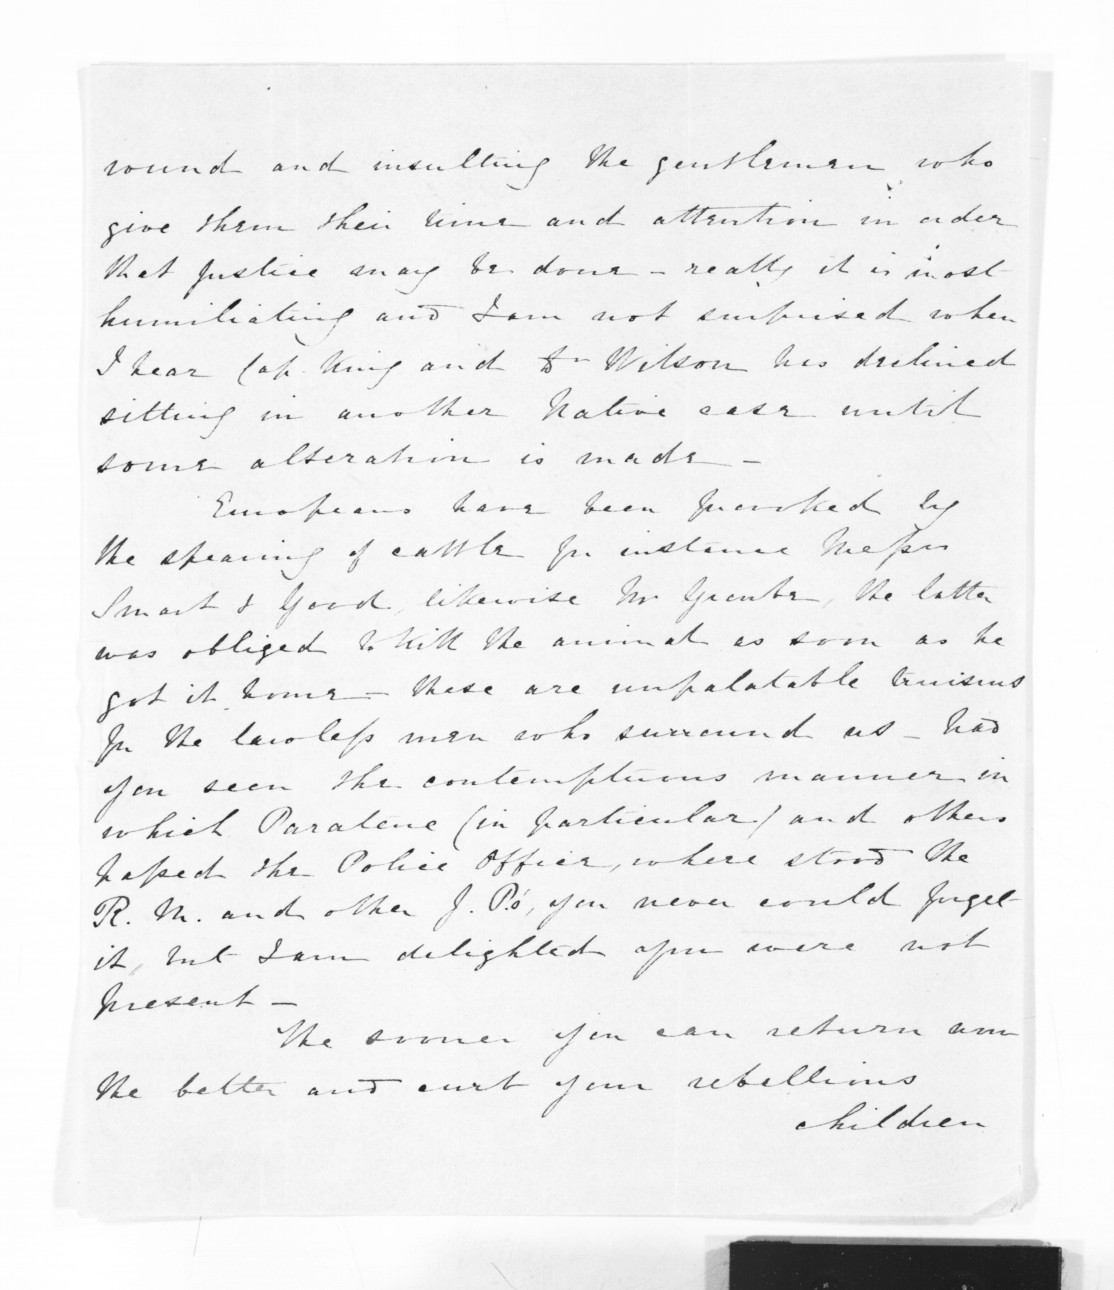 round and insulting the gentlemen who
give them their time and attention in order
that justice may be done – really it is most
humiliating and I am not surprised when
I hear Cap. King and Dr Wilson has declined
sitting in another Native case until
some alteration is made –
Europeans have been provoked by
the spearing of cattle for instance Messrs
Smart & Good, likewise Mr the latter
was obliged to kill the animal as soon as he
got it home – these are unpalatable truisms
for the lawless men who surround us – had
you seen the contemptuous manner in
which Paratene (in particular) and others
passed the Police Office, where stood the
R. M. and other J. P.s, you never could forget
it, but I am delighted you were not
present –
The sooner you can return now
the better and curb your rebellious
children